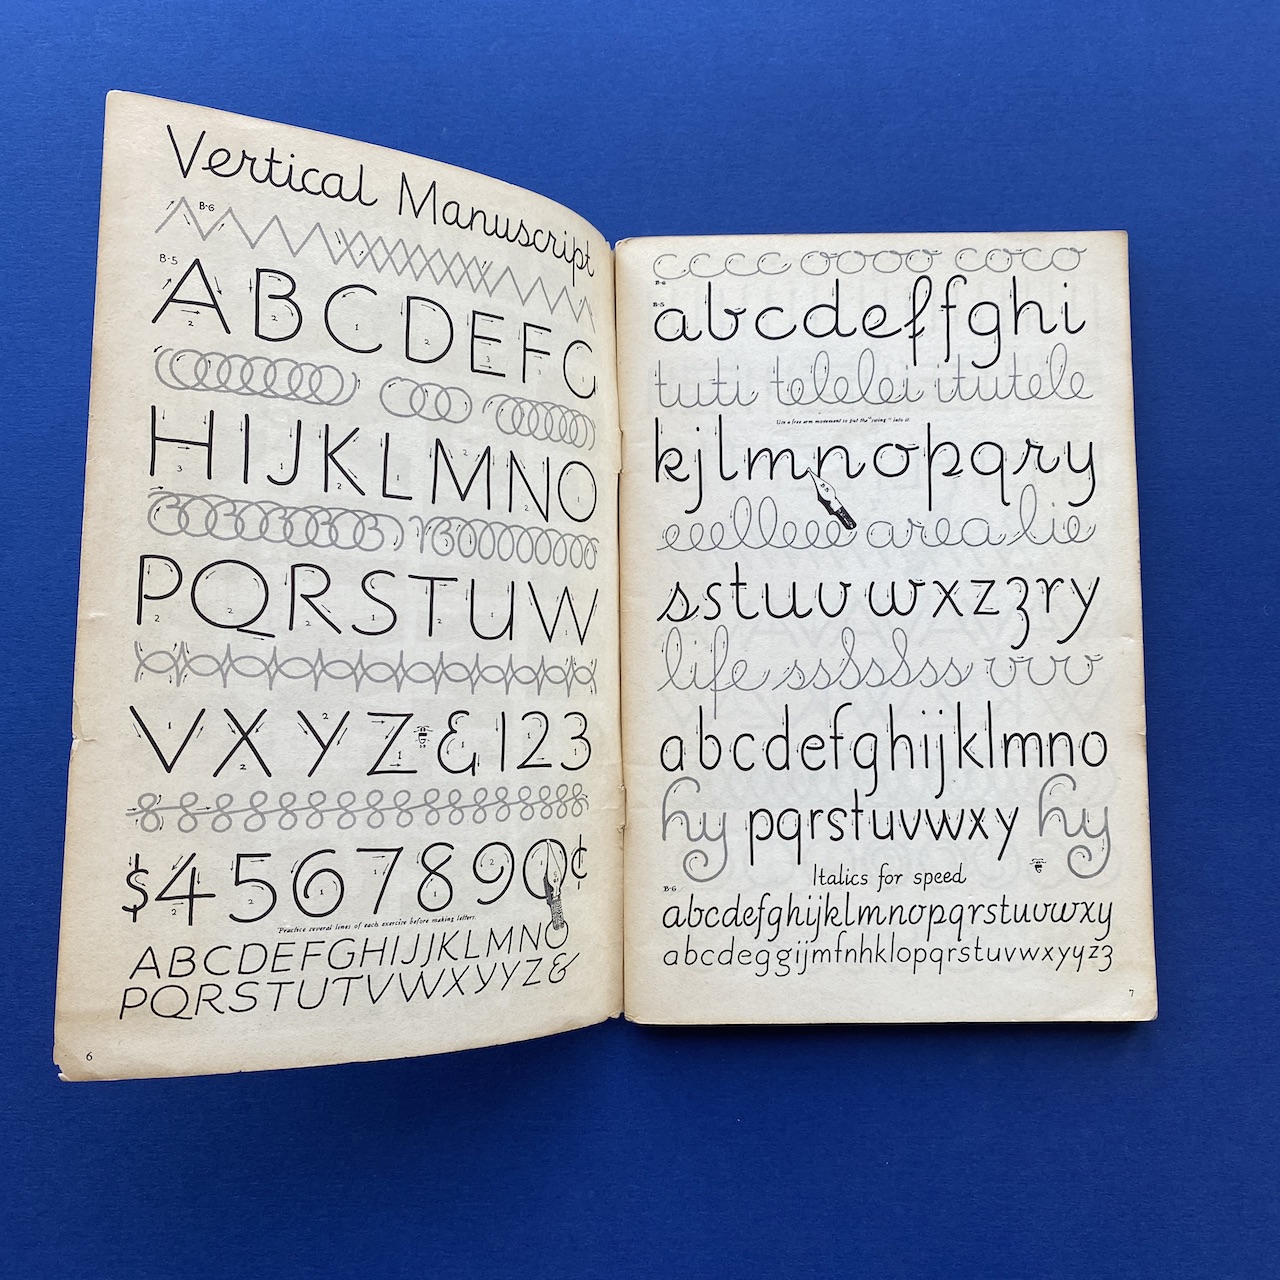 Vertical Manuscript
B-6
B-5
A B C D E F G
H I J K L M N O
P Q R S T U W
V X Y Z & 1 2 3
8 8 8 8 8 8 8 8 8 8 8 8 8 8 8 8
$ 4 5 6 7 8 9 0 ¢
Practice several lines of each exercise before making letters.
ABCDEFGHIJJKLMNO
PQRSTUTVWXYYZ&
6
cccc oooo coco
B-6
B-5
abcdeffghi
tuti telelei itutele
Use a free arm movement to put the "swing" into it.
kjlmnopqry
eeelleee area lie
sstuuvwxzzry
life sssssss vvv
abcdefghijklmno
hy pqrstuvwxy hy
Italics for speed
B-6
abcdefghijklmnopqrstuvwxy
abcdeggijmfnhklopqrstuvwxyyzz
7